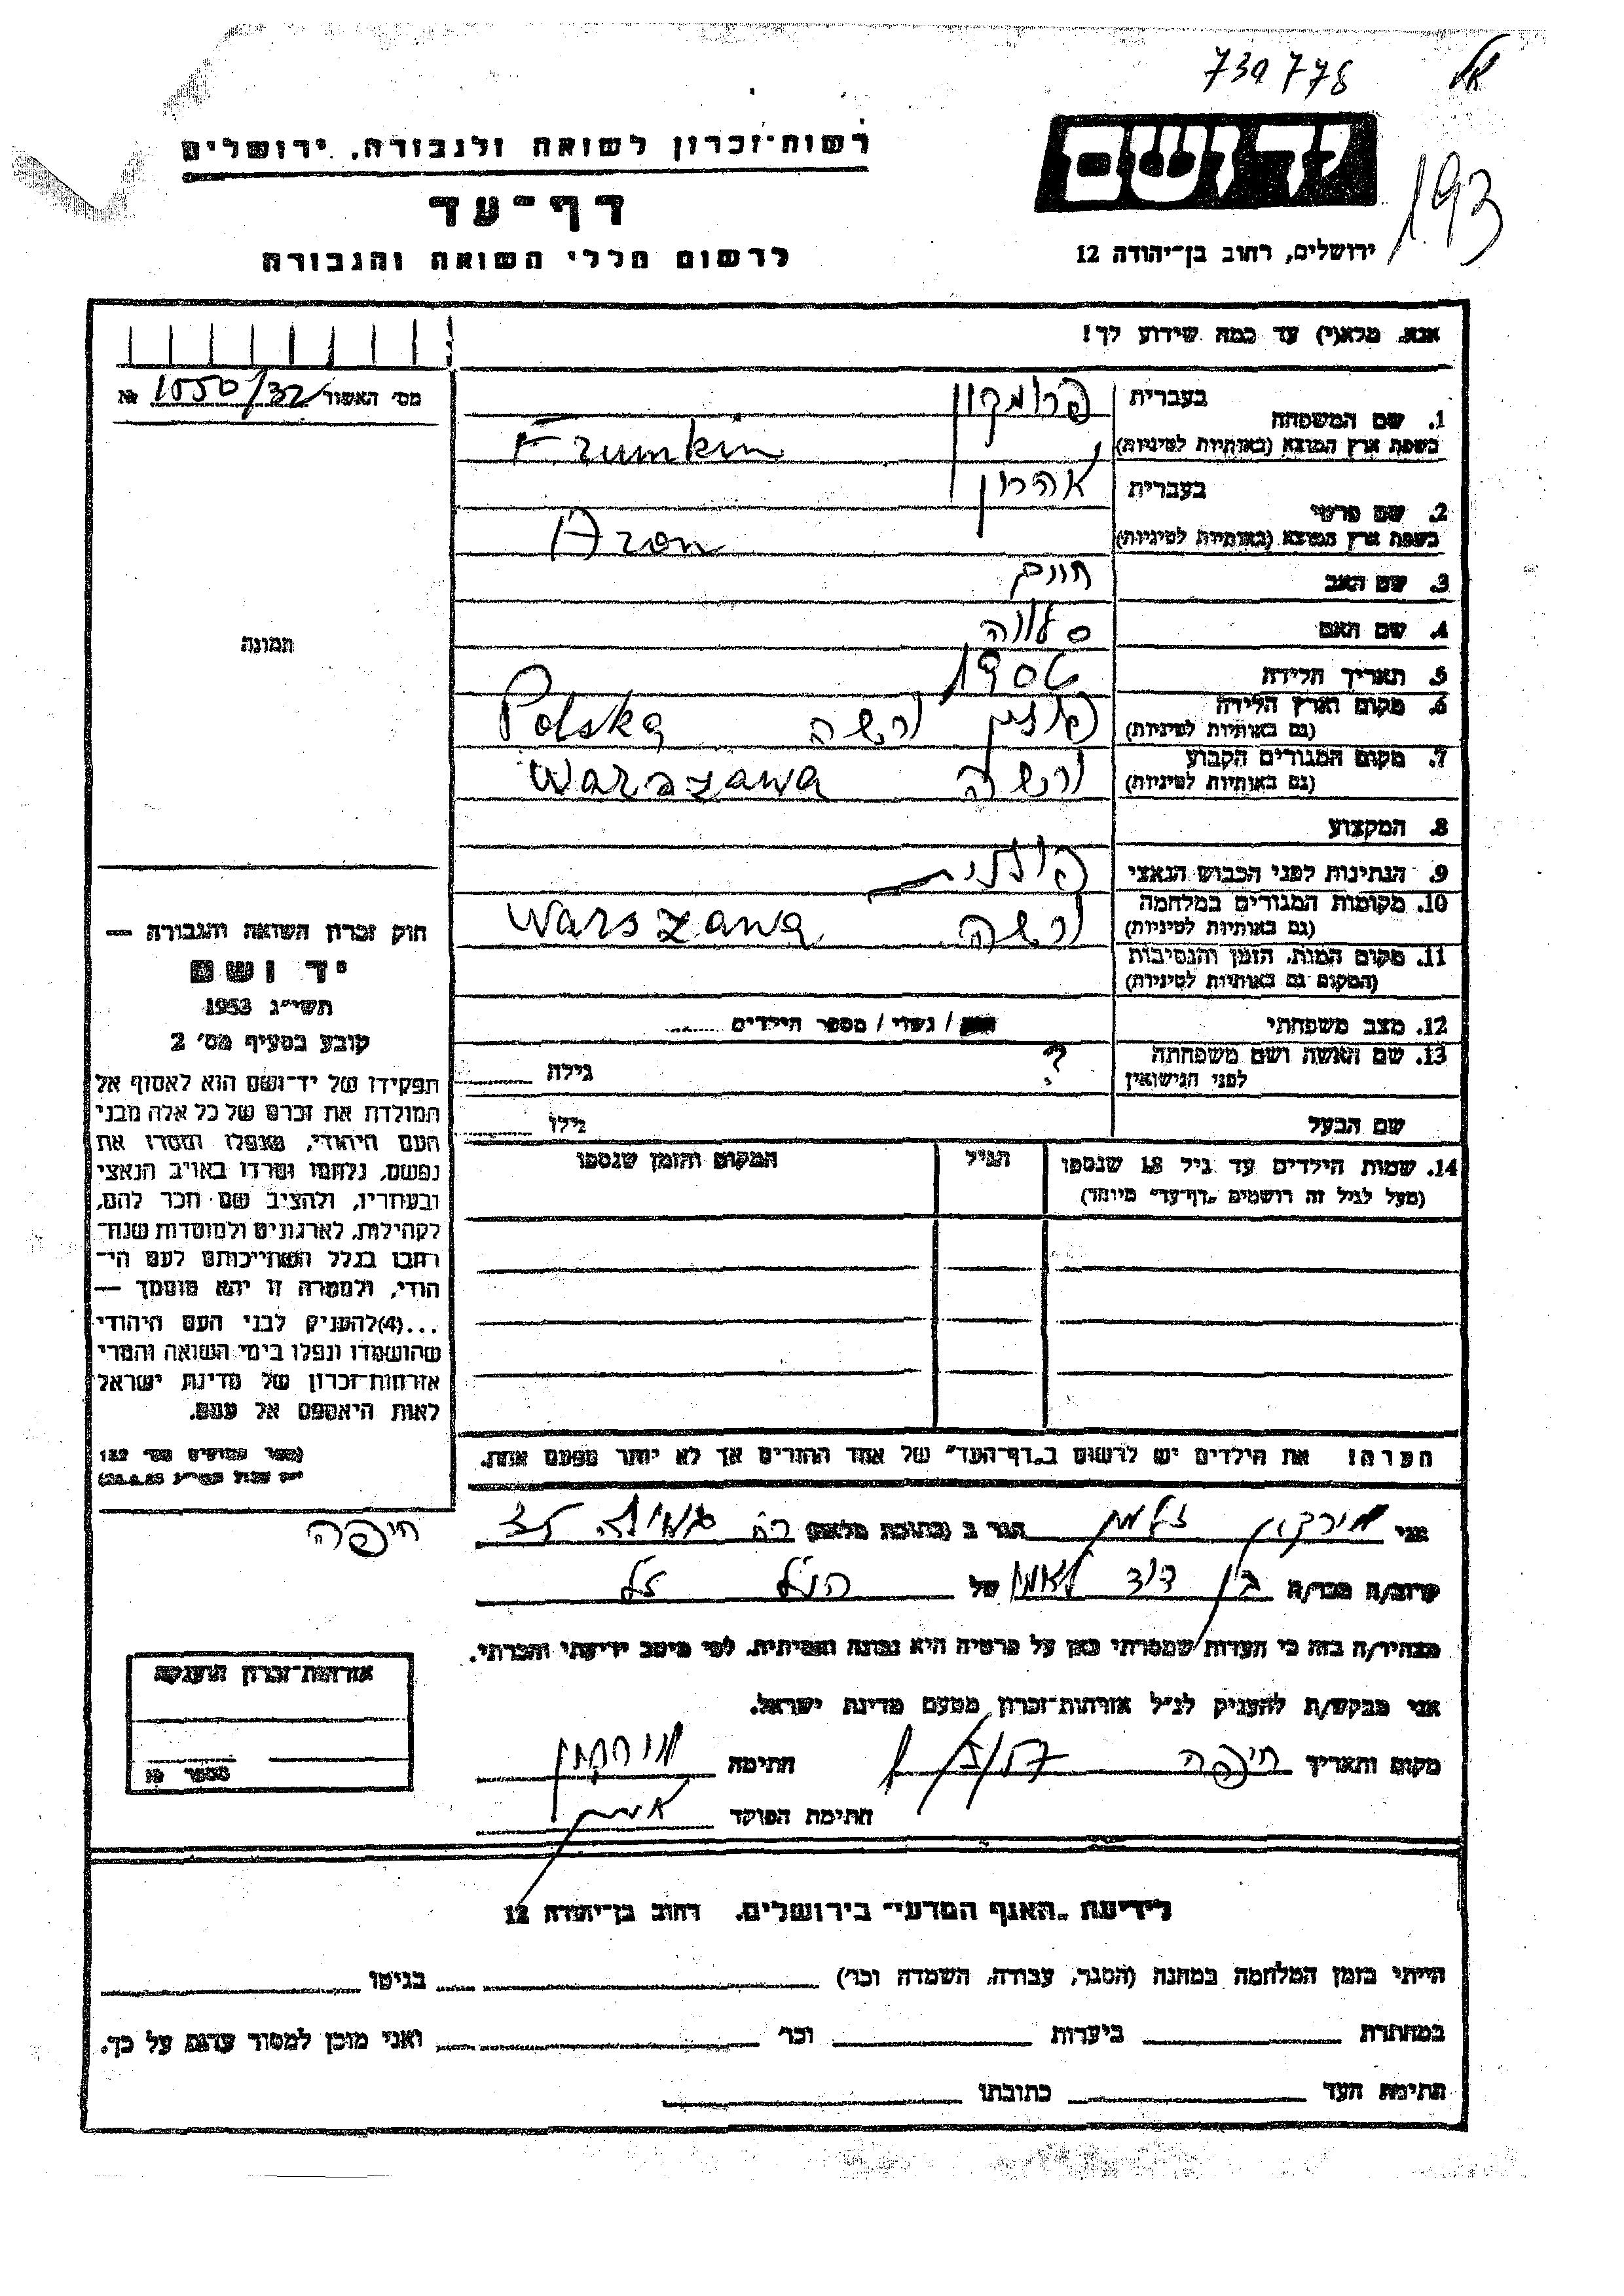 739778
193
יד ושם
ירושלים, רחוב בן־יהודה 12
רשות־זכרון לשואה ולגבורה, ירושלים
דף־עד
לרשום חללי השואה והגבורה
אנא, מלא(י) עד כמה שידוע לך!
מס׳ האשור 1050/32 №
1. שם המשפחה בעברית פרומקין
בשפת ארץ המוצא (באותיות לטיניות) Frumkin
2. שם פרטי בעברית אהרון
בשפת ארץ המוצא (באותיות לטיניות) Aron
3. שם האב חיים
4. שם האם
5. תאריך הלידה 1906
6. מקום וארץ הלידה (גם באותיות לטיניות) פולין ורשה Polska
7. מקום המגורים הקבוע (גם באותיות לטיניות) ורשה Warszawa
8. המקצוע
9. הנתינות לפני הכבוש הנאצי פולנית
10. מקומות המגורים במלחמה (גם באותיות לטיניות) ורשה Warszawa
11. מקום המות, הזמן והנסיבות (המקום גם באותיות לטיניות)
12. מצב משפחתי / נשוי / מספר הילדים
13. שם האשה ושם משפחתה לפני הנישואין ? גילה
שם הבעל גילו
14. שמות הילדים עד גיל 18 שנספו (מעל לגיל זה רושמים „דף־עד״ מיוחד)
הגיל
המקום והזמן שנספו
הערה! את הילדים יש לרשום ב„דף־העד״ של אחד ההורים אך לא יותר מפעם אחת.
תמונה
חוק זכרון השואה והגבורה —
יד ושם
תשי״ג 1953
קובע בסעיף מס׳ 2
תפקידו של יד־ושם הוא לאסוף אל
המולדת את זכרם של כל אלה מבני
העם היהודי, שנפלו ומסרו את
נפשם, נלחמו ומרדו באויב הנאצי
ובעוזריו, ולהציב שם וזכר להם,
לקהילות, לארגונים ולמוסדות שנח־
רבו בגלל השתייכותם לעם הי־
הודי, ולמטרה זו יהא מוסמך —
...(4) להעניק לבני העם היהודי
שהושמדו ונפלו בימי השואה והמרי
אזרחות־זכרון של מדינת ישראל
לאות היאספם אל עמם.
(ספר החוקים מס׳ 132
חיפה
אני זלמן הגר ב (כתובת מלאה)
קרוב/ה מכר/ה בן דוד של הנ״ל
מצהיר/ה בזה כי העדות שמסרתי כאן על פרטיה היא נכונה ואמיתית, לפי מיטב ידיעתי והכרתי.
אני מבקש/ת להעניק לנ״ל אזרחות־זכרון מטעם מדינת ישראל.
מקום ותאריך חיפה חתימה
חתימת הפוקד
אזרחות־זכרון הוענקה
מספר №
לידיעת „האגף המדעי״ בירושלים, רחוב בן־יהודה 12
הייתי בזמן המלחמה במחנה (הסגר, עבודה, השמדה וכו׳) בגיטו
במחתרת ביערות וכו׳ ואני מוכן למסור עדות על כך.
חתימת העד כתובתו